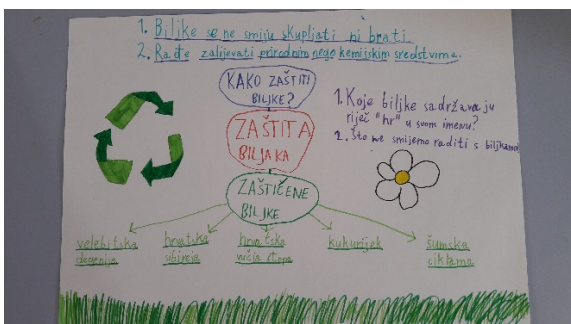 1. Biljke se ne smiju skupljati ni brati.
2. Rađe zalijevati prirodnim nego kemijskim sredstvima.
KAKO ZAŠTITI
BILJKE?
ZAŠTITA
BILJAKA
ZAŠTIČENE
BILJKE
1. Koje biljke sadržavaju
riječ "hr" u svom imenu?
2. Što ne smijemo raditi s biljkama?
velebitska
degenija
hrvatska
sibireja
hrvatska
vučja stopa
kukurijek
šumska
ciklama